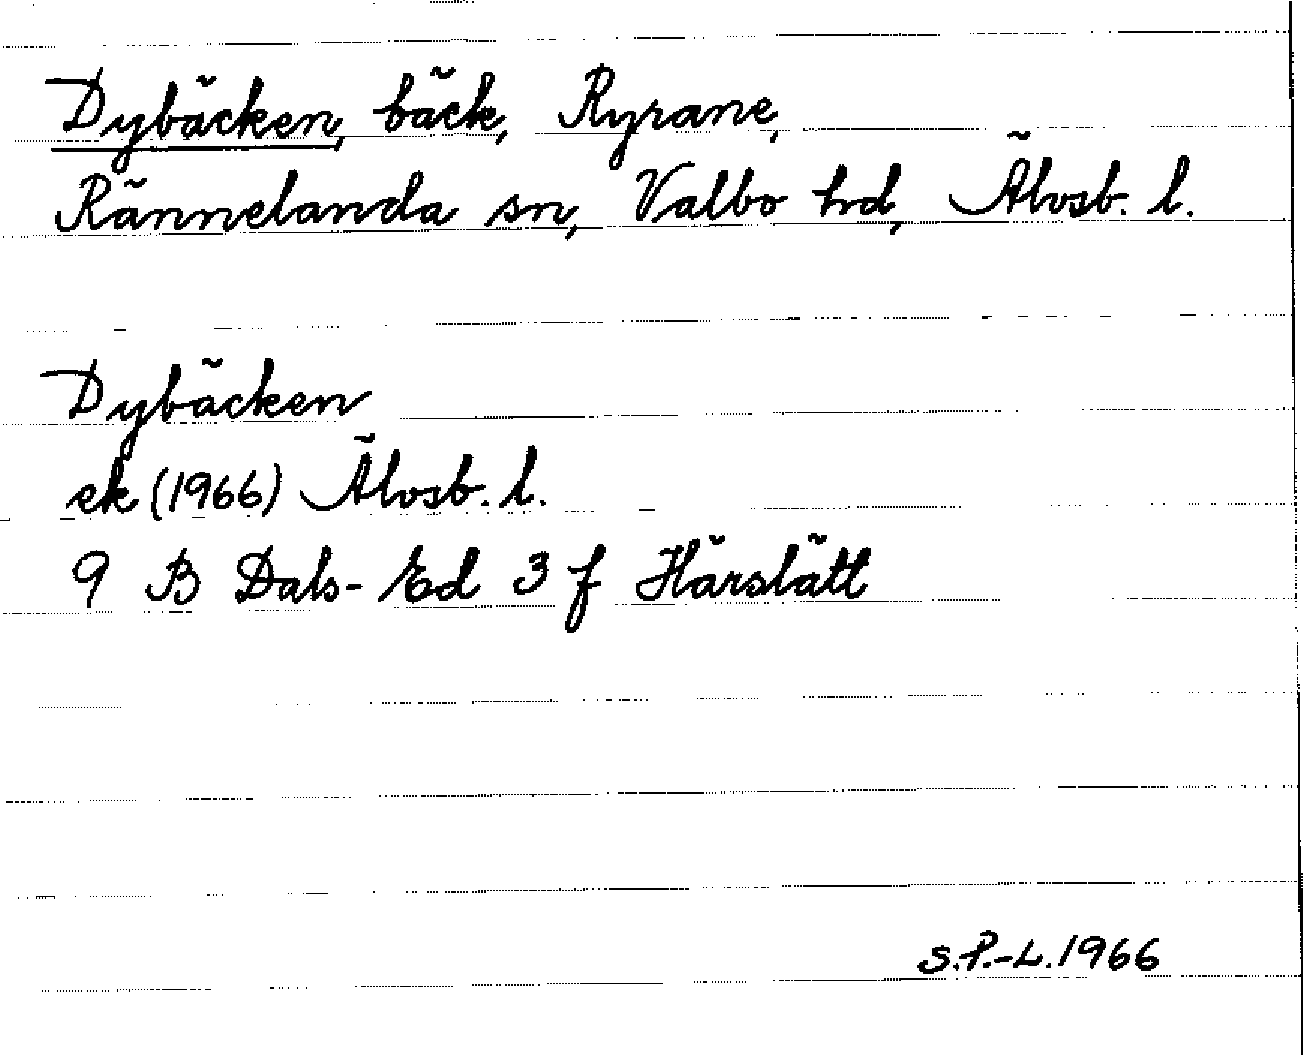 Dybäcken, bäck, Ryrane,
Rännelanda sn, Valbo hd, Älvsb. l.
Dybäcken
ek (1966) Älvsb. l.
9 B Dals-Ed 3 f Härslätt
S.P.-L. 1966